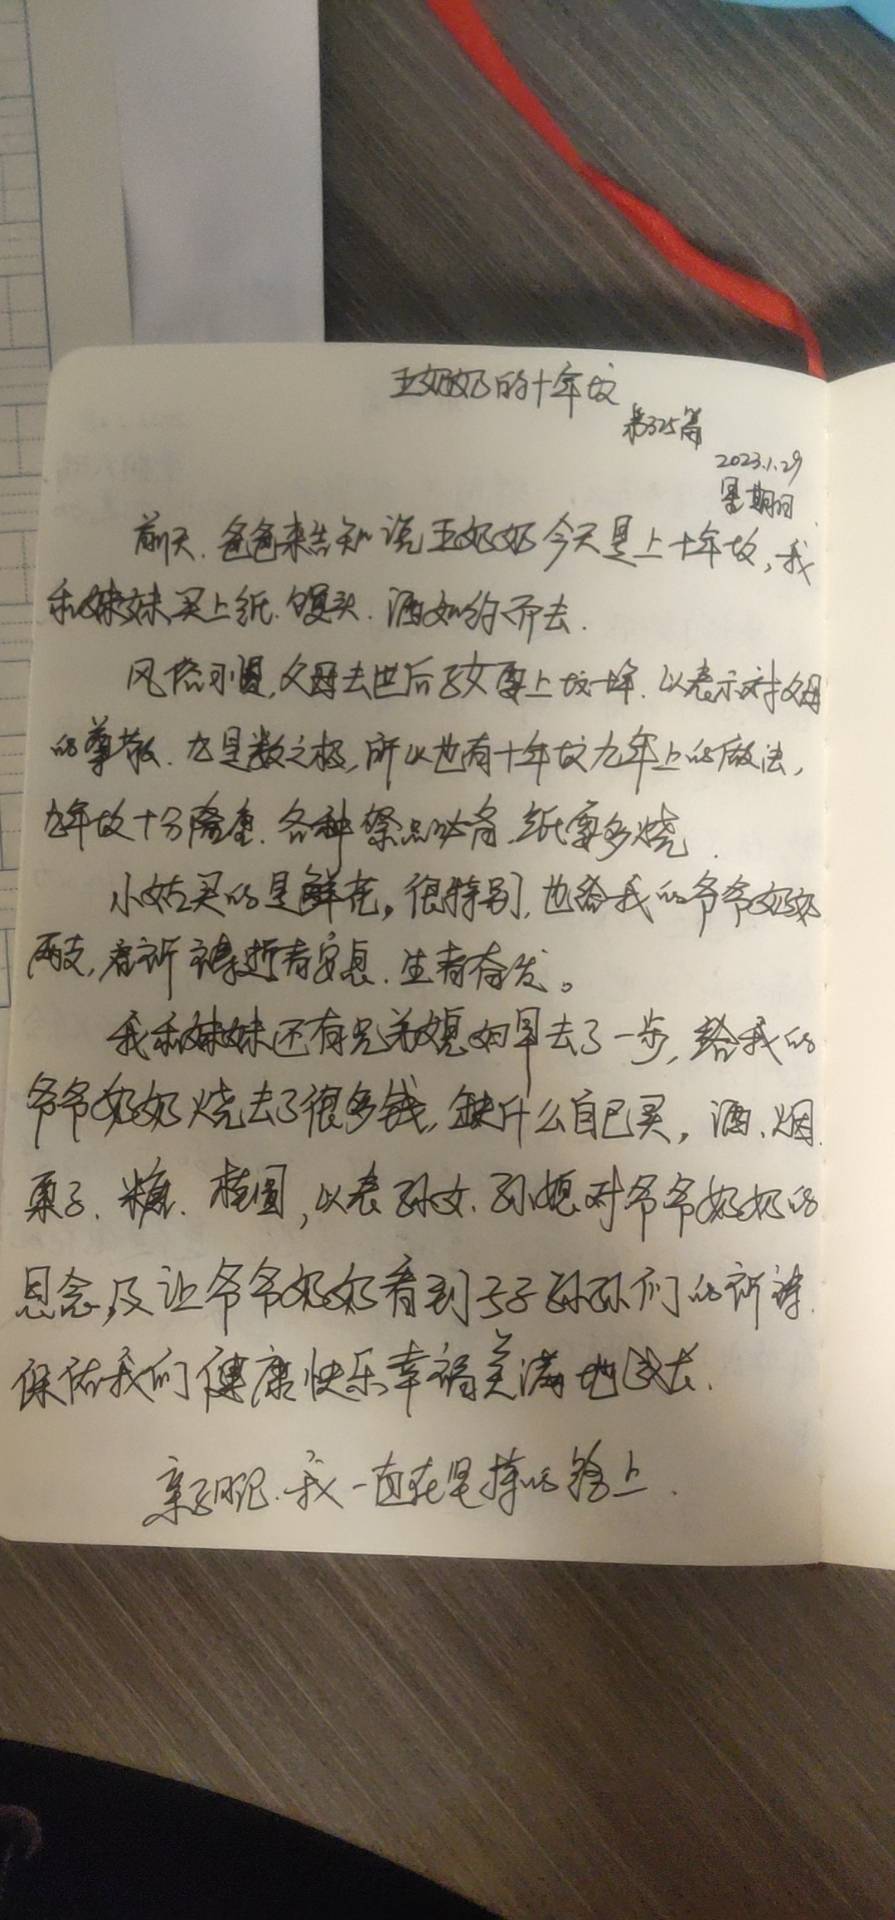 五奶奶的十年坟
第325篇
2023.1.29
星期日
前天,爸爸来告知说五奶奶今天是上十年坟,我
和妹妹买上纸、馒头、酒如约而去.
风俗习惯,父母去世后子女要上坟十年.以表示对父母
的尊敬.九是数之极,所以也有十年坟九年上的做法,
九年坟十分隆重.各种祭品必备.纸要多烧.
小姑买的是鲜花。很特别,也给我的爷爷奶奶
两支,祈祷逝者安息.生者奋发。
我和妹妹还有兄弟媳妇早去了一步,给我的
爷爷奶奶烧去了很多钱,缺什么自己买,酒、烟、
栗子、糖、桂圆,以表孙女、孙媳对爷爷奶奶的
思念,及让爷爷奶奶看到子子孙孙们的祈祷.
保佑我们健康快乐幸福美满地过去.
亲子日记.我一直在坚持的路上.